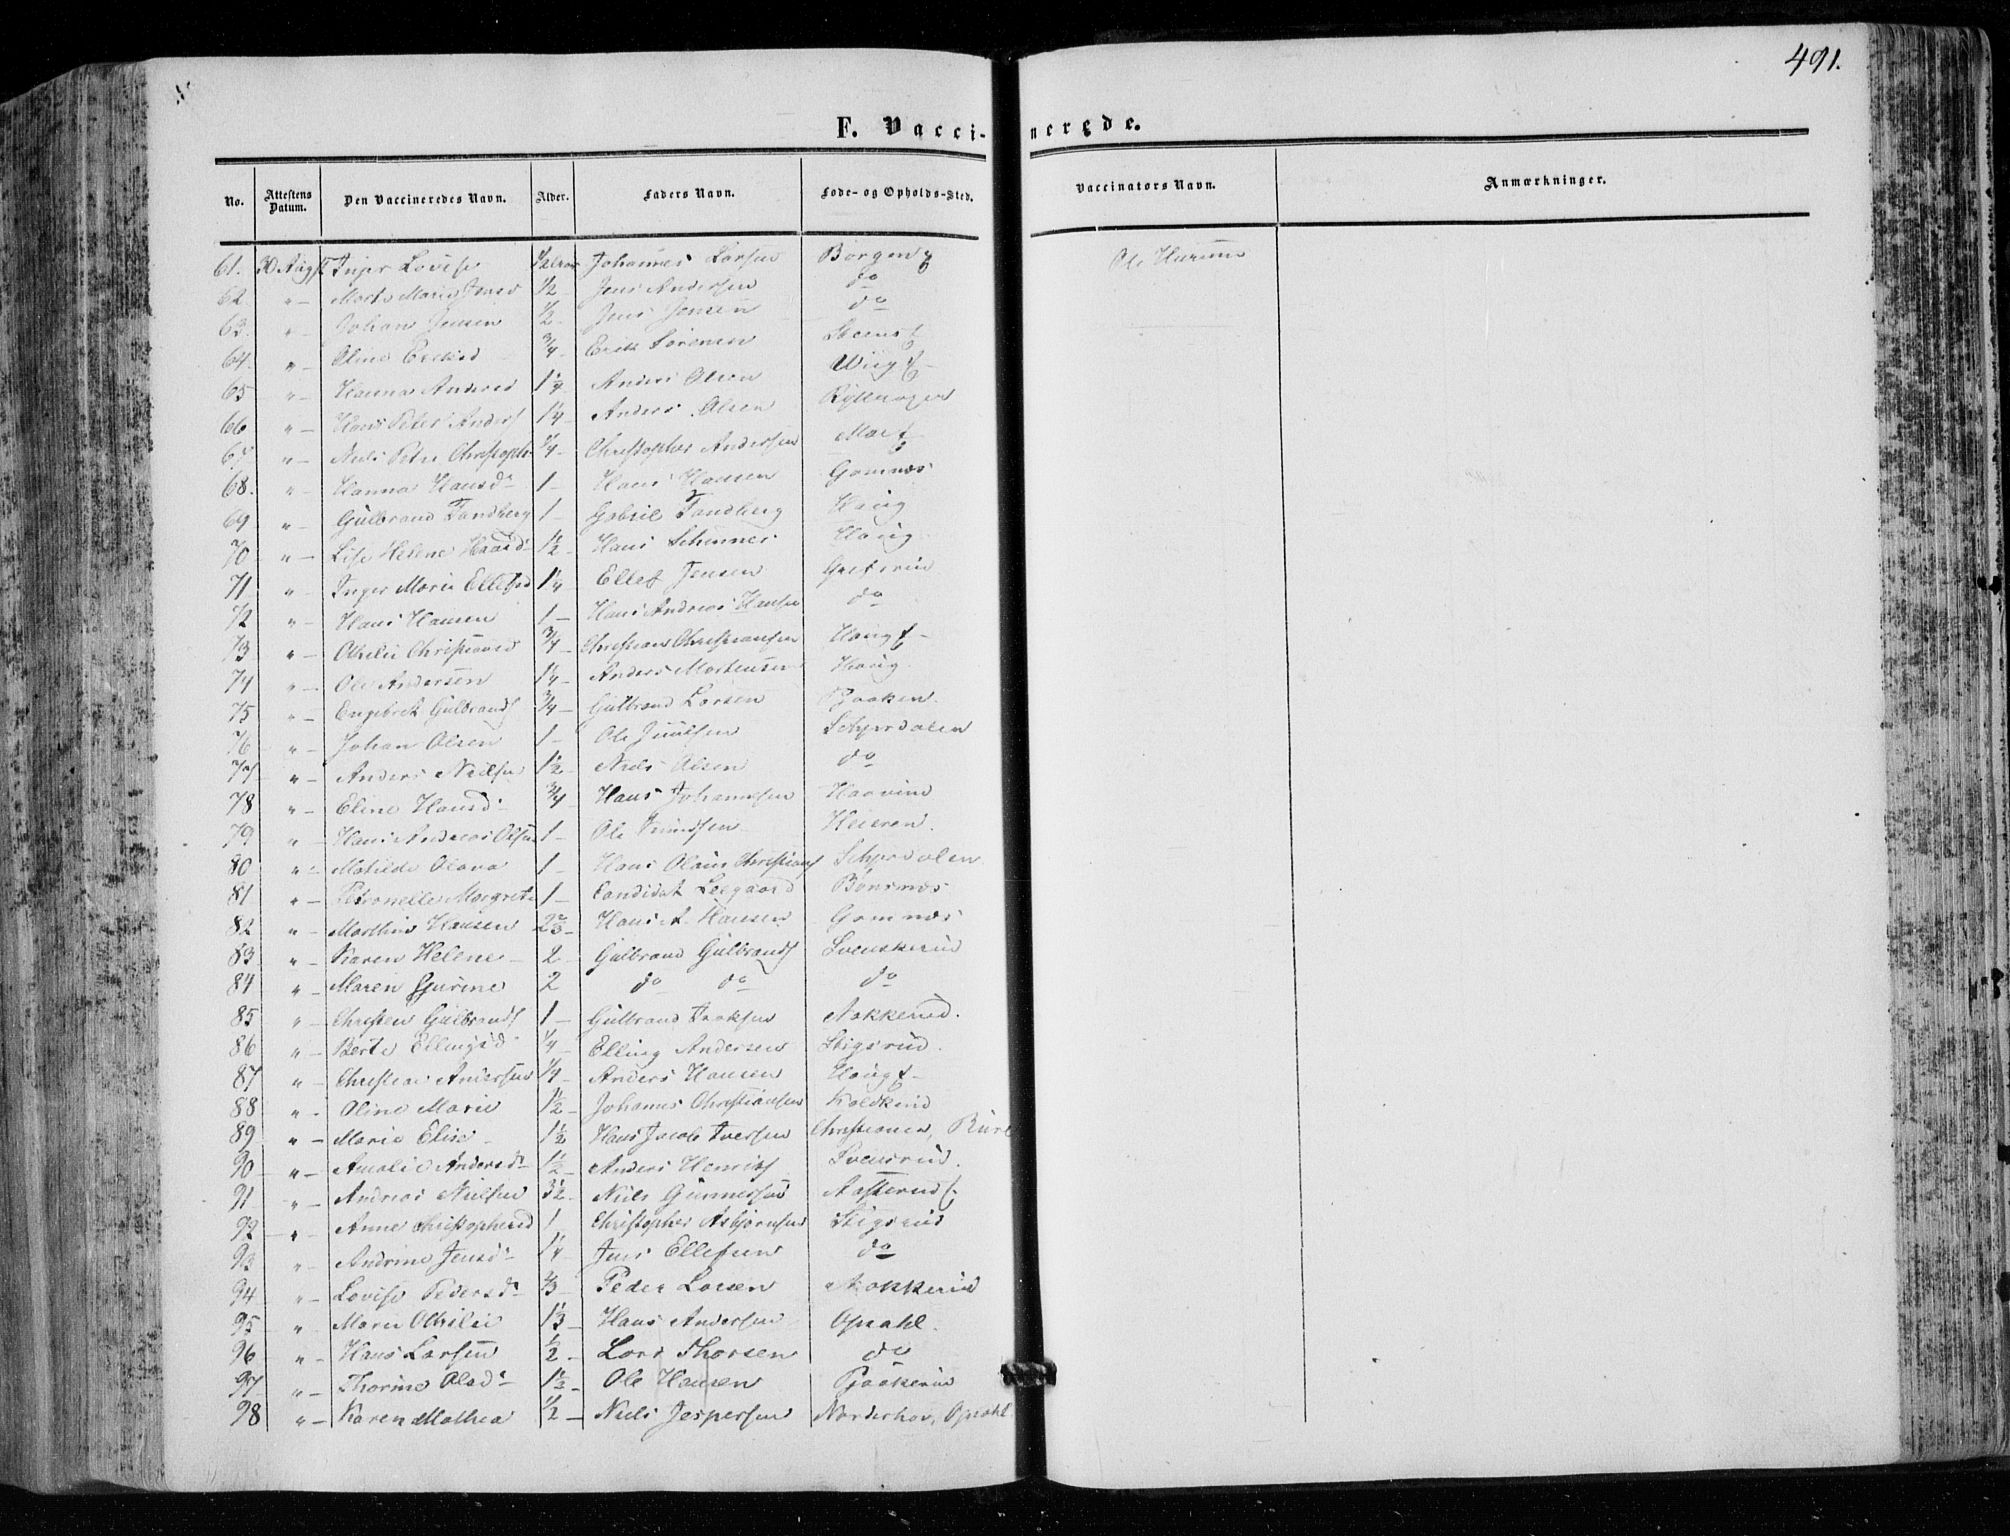 491.
F. Vaccinerede.
No. Attestens Datum. Den Vaccineredes Navn. Alder. Faders Navn. Føde- og Opholds-Sted. Vaccinators Navn. Anmærkninger.
61. 30 Augst Inger Lovise 1/2 Johannes Larsen Borgen Ole Hurum
62 " Marte Marie Jensd 1/2 Jens Andersen do
63. " Johan Jensen 1/2 Jens Jensen do
64. " Oline Eriksd 3/4 Erik Sørensen
65 " Hanna Andersd 1 1/4 Anders Olsen Wiig
66 " Hans Peter Anders 1 1/4 Anders Olsen
67 " Niels Peter Christoph 1/4 Christopher Andersen Moe
68. " Hanna Hansdr 1 Hans Hansen Gomnæs
69 " Gulbrand Tandberg 1 Gabriel Tandberg Haug
70 " Lise Helene Haasd 1 1/2 Hans Schinnes Haug
71 " Inger Marie Ellefsd 1 1/4 Ellef Jensen Gresrud
72 " Hans Hansen 1 Hans Andreas Hansen do
73 " Othilie Christiansd 3/4 Christian Christiansen Haug
74 " Ole Andersen 1 1/4 Anders Mortensen Haug
75 " Engebret Gulbrands 3/4 Gulbrand Larsen Bjaaken
76 " Johan Olsen 1 Ole Juulsen Schjerdalen
77 " Anders Nielsen 1 1/2 Niels Olsen do
78 " Eline Hansd 3/4 Hans Johannesen Haavind
79 " Hans Andreas Olsen 1 Ole Heieren.
80 " Mathilde Olava 1 Hans Olaus Christians Schjerdalen
81 " Petronelle Margrete 1 Candidat Leegaard Bønsnæs
82 " Marthin Hansen 2 2/3 Hans A. Hansen Gomnæs
83 " Karen Helene 2 Gulbrand Gulbrands Svenskerud
84 " Maren Gurine 2 do do do
85 " Christen Gulbrands 1 Gulbrand Isaksen Nokkerud.
86 " Berte Ellingsd 1/4 Elling Andersen Stigsrud.
87 " Christian Andersen 1/4 Anders Hansen Haug
88 " Oline Marie 1 1/2 Johannes Christiansen Koldkind
89 " Marie Elise 1 1/2 Hans Jacob Iversen Christiania,
90 " Amalie Andersd 1 1/2 Anders Henriks Svensrud.
91 " Andreas Nielsen 3 1/2 Niels Gunnersen Aasterud
92 " Anne Christophersd 1 Christopher Asbjørnsen Stigsrud
93 " Andrine Jensd 1 1/4 Jens Ellefsen do
94 " Lovise Pedersd 2/3 Peder Larsen Nokkerud
95 " Maren Othilie 1 1/3 Hans Andersen Opsahl.
96 " Hans Larsen 1/2 Lars Thorsen do
97 " Thorine Olsd 1 1/2 Ole Hansen Bjaakerud
98 " Karen Mathea 1/2 Niels Jespersen Norderhov, Opsahl.